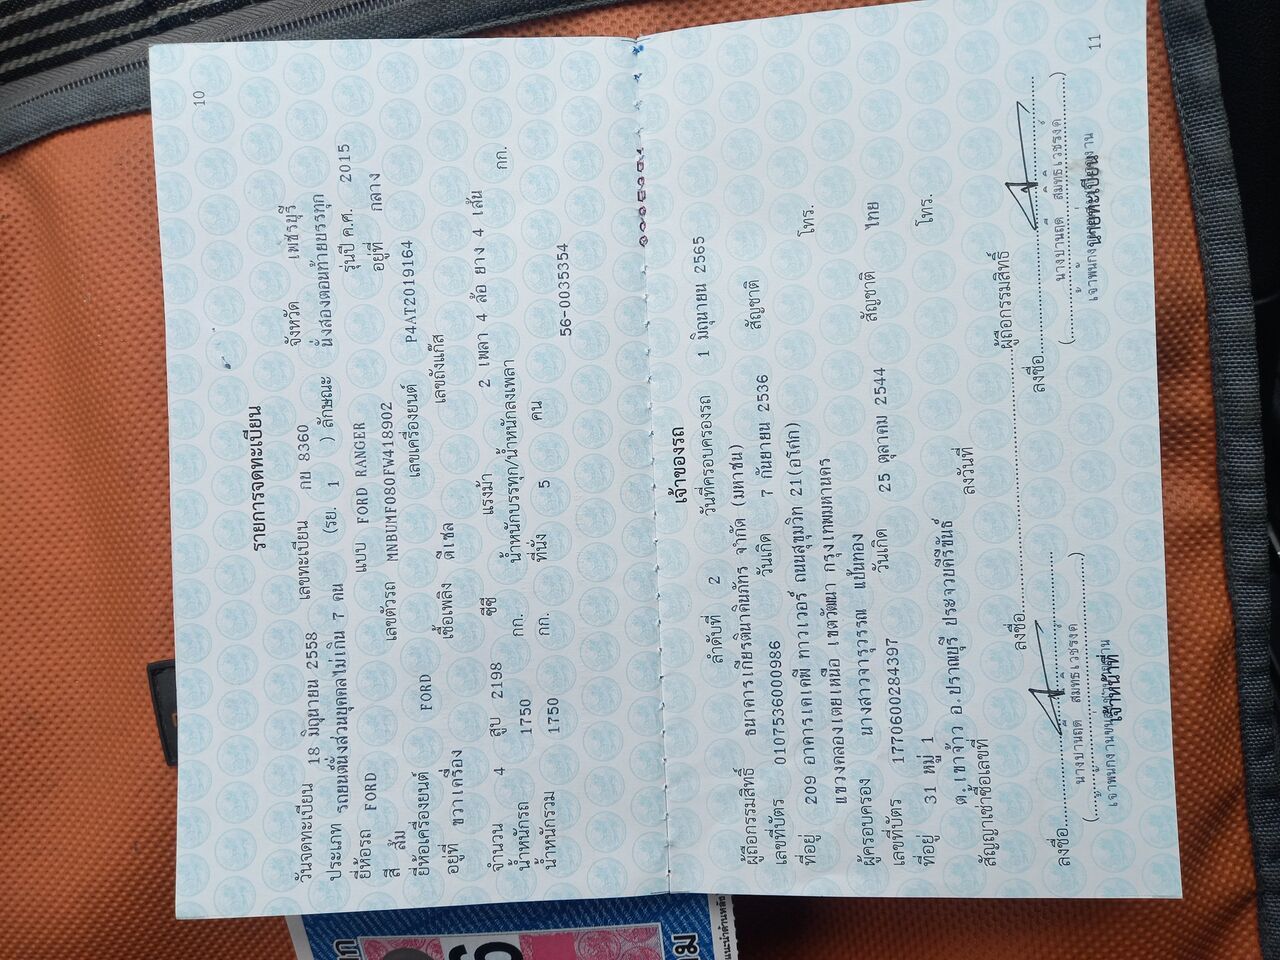 10
รายการจดทะเบียน
วันจดทะเบียน 18 มิถุนายน 2558 เลขทะเบียน กบ 8360 จังหวัด เพชรบุรี
ประเภท รถยนต์นั่งส่วนบุคคลไม่เกิน 7 คน (รย. 1 ) ลักษณะ นั่งสองตอนท้ายบรรทุก
ยี่ห้อรถ FORD แบบ FORD RANGER รุ่นปี ค.ศ. 2015
สี ส้ม เลขตัวรถ MNBUMF080FW418902 อยู่ที่ กลาง
ยี่ห้อเครื่องยนต์ FORD เลขเครื่องยนต์ P4AT2019164
อยู่ที่ ขวาเครื่อง เชื้อเพลิง ดีเซล เลขถังแก๊ส
จำนวน 4 สูบ 2198 ซีซี แรงม้า 2 เพลา 4 ล้อ ยาง 4 เส้น
น้ำหนักรถ 1750 กก. น้ำหนักบรรทุก/น้ำหนักลงเพลา กก.
น้ำหนักรวม 1750 กก. ที่นั่ง 5 คน
56-0035354
เจ้าของรถ
ลำดับที่ 2 วันที่ครอบครองรถ 1 มิถุนายน 2565
ผู้ถือกรรมสิทธิ์ ธนาคารเกียรตินาคินภัทร จำกัด (มหาชน)
เลขที่บัตร 0107536000986 วันเกิด 7 กันยายน 2536 สัญชาติ
ที่อยู่ 209 อาคารเคเคพี ทาวเวอร์ ถนนสุขุมวิท 21(อโศก)
แขวงคลองเตยเหนือ เขตวัฒนา กรุงเทพมหานคร โทร.
ผู้ครอบครอง นางสาวจารุวรรณ แป้นทอง
เลขที่บัตร 1770600284397 วันเกิด 25 ตุลาคม 2544 สัญชาติ ไทย
ที่อยู่ 31 หมู่ 1
ต.เขาจ้าว อ.ปราณบุรี ประจวบคีรีขันธ์ โทร.
สัญญาเช่าซื้อเลขที่ ลงวันที่
ลงชื่อ ผู้ถือกรรมสิทธิ์
ลงชื่อ ลงชื่อ
เจ้าหน้าที่ นายทะเบียน
11